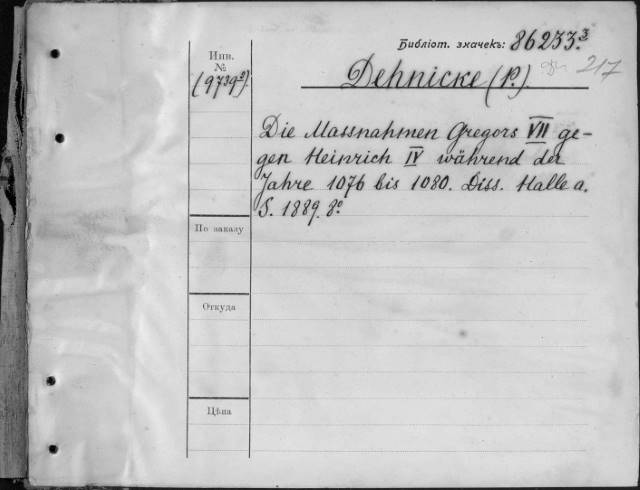 Библіот. значекъ: 86233.3
Инв.
№
(9739²)
217
Dehnicke (P.)
Die Massnahmen Gregors VII ge-
gen Heinrich IV während der
Jahre 1076 bis 1080. Diss. Halle a.
S. 1889. 8°
По заказу
Откуда
Цѣна